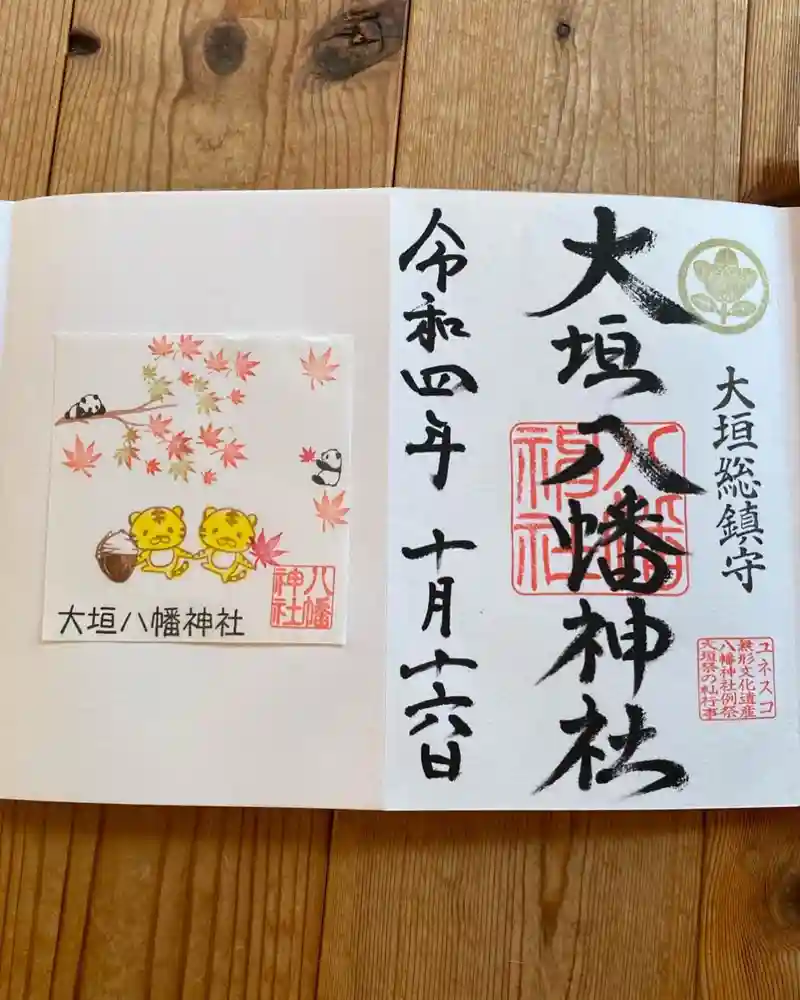 大垣総鎮守
大垣八幡神社
八幡
神社
ユネスコ
無形文化遺産
八幡神社例祭
大垣祭の軕行事
令和四年 十月十六日
八幡
神社
大垣八幡神社